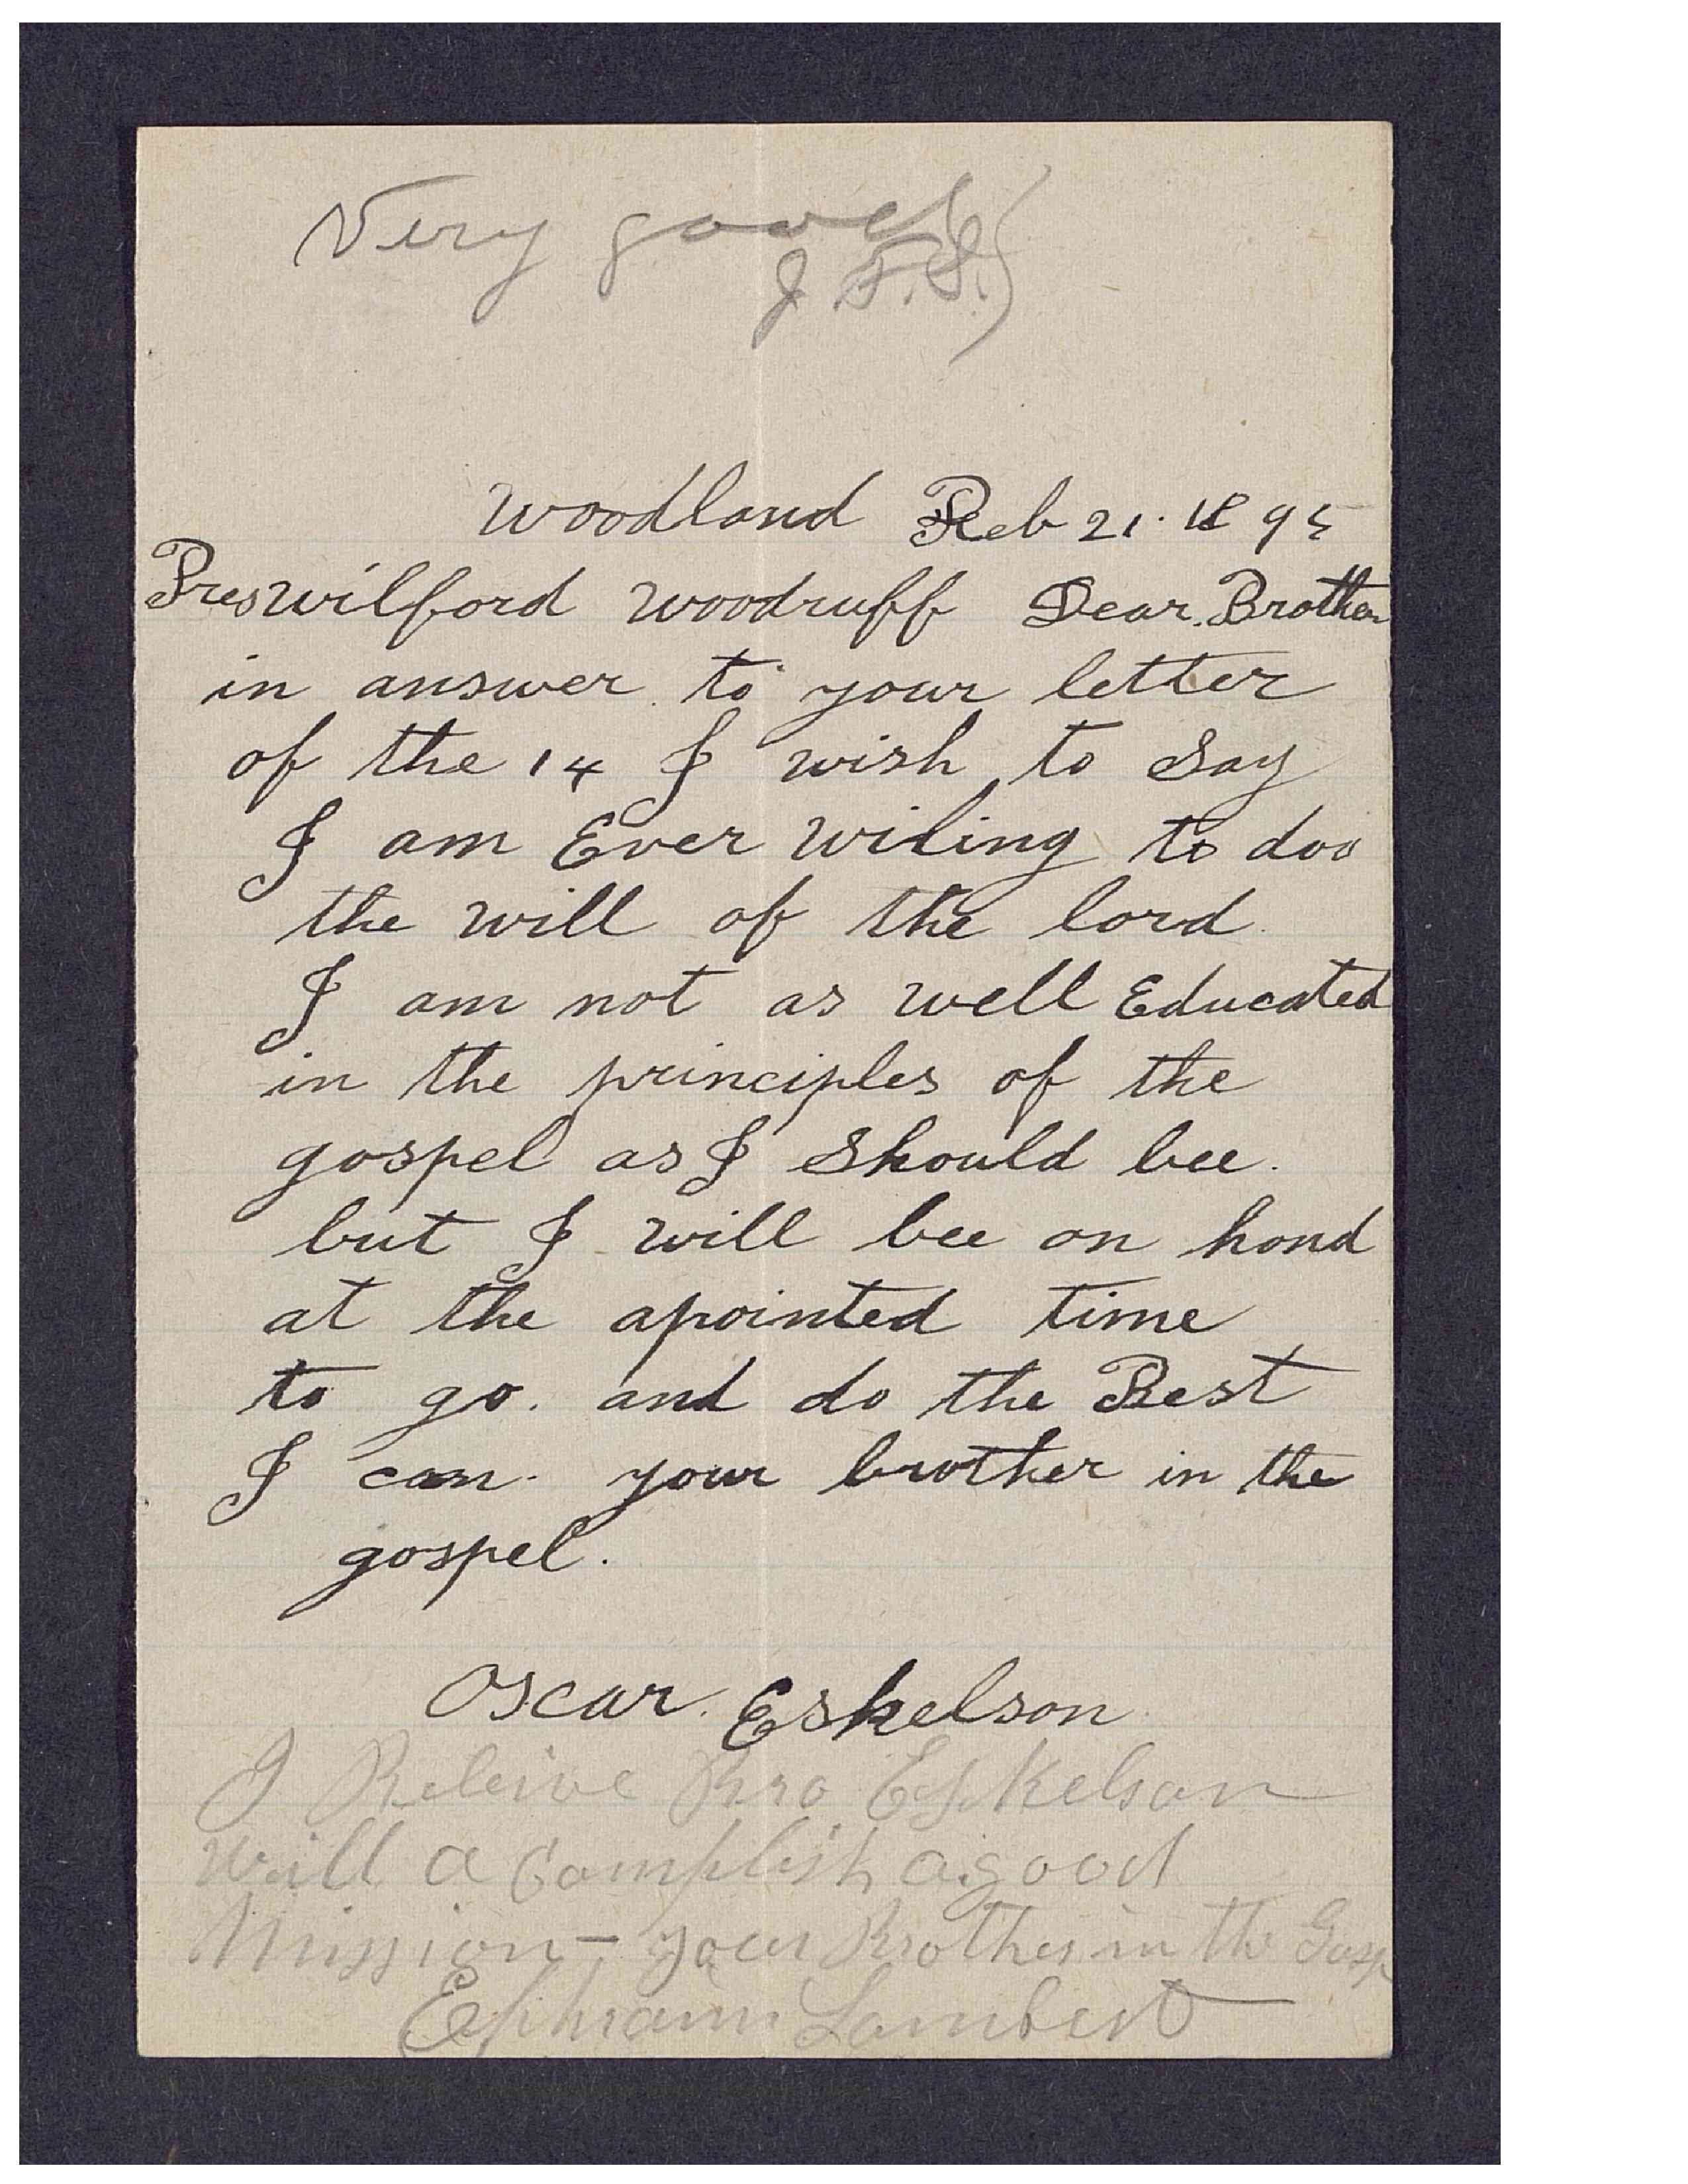 Very good
J. F. S.
Woodland Feb 21. 1895
Pres Wilford Woodruff Dear. Brother
in answer to your letter
of the 14 I wish to Say
I am Ever wiling to doo
the will of the lord.
I am not as well Educated
in the principles of the
gospel as I Should bee.
but I will bee on hand
at the apointed time
to go. and do the Best
I can. your brother in the
gospel.
Oscar. Eskelson
I Beleive Bro Eskelson
will a complish a good
Mission - your Brother in the Gosp
Ephraim Lambert